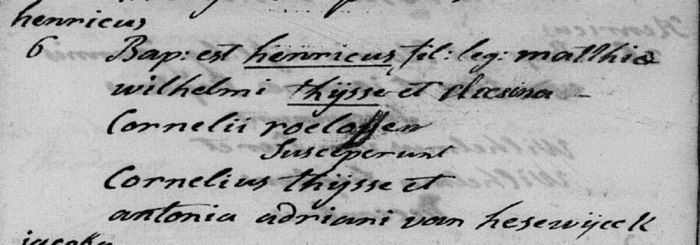 henricus
6 Bap: est henricus fil: leg: matthiæ
wilhelmi thijsse et
Cornelii roeloffsen
Susceperunt
Cornelius thijsse et
antonia adriani van hesewijck